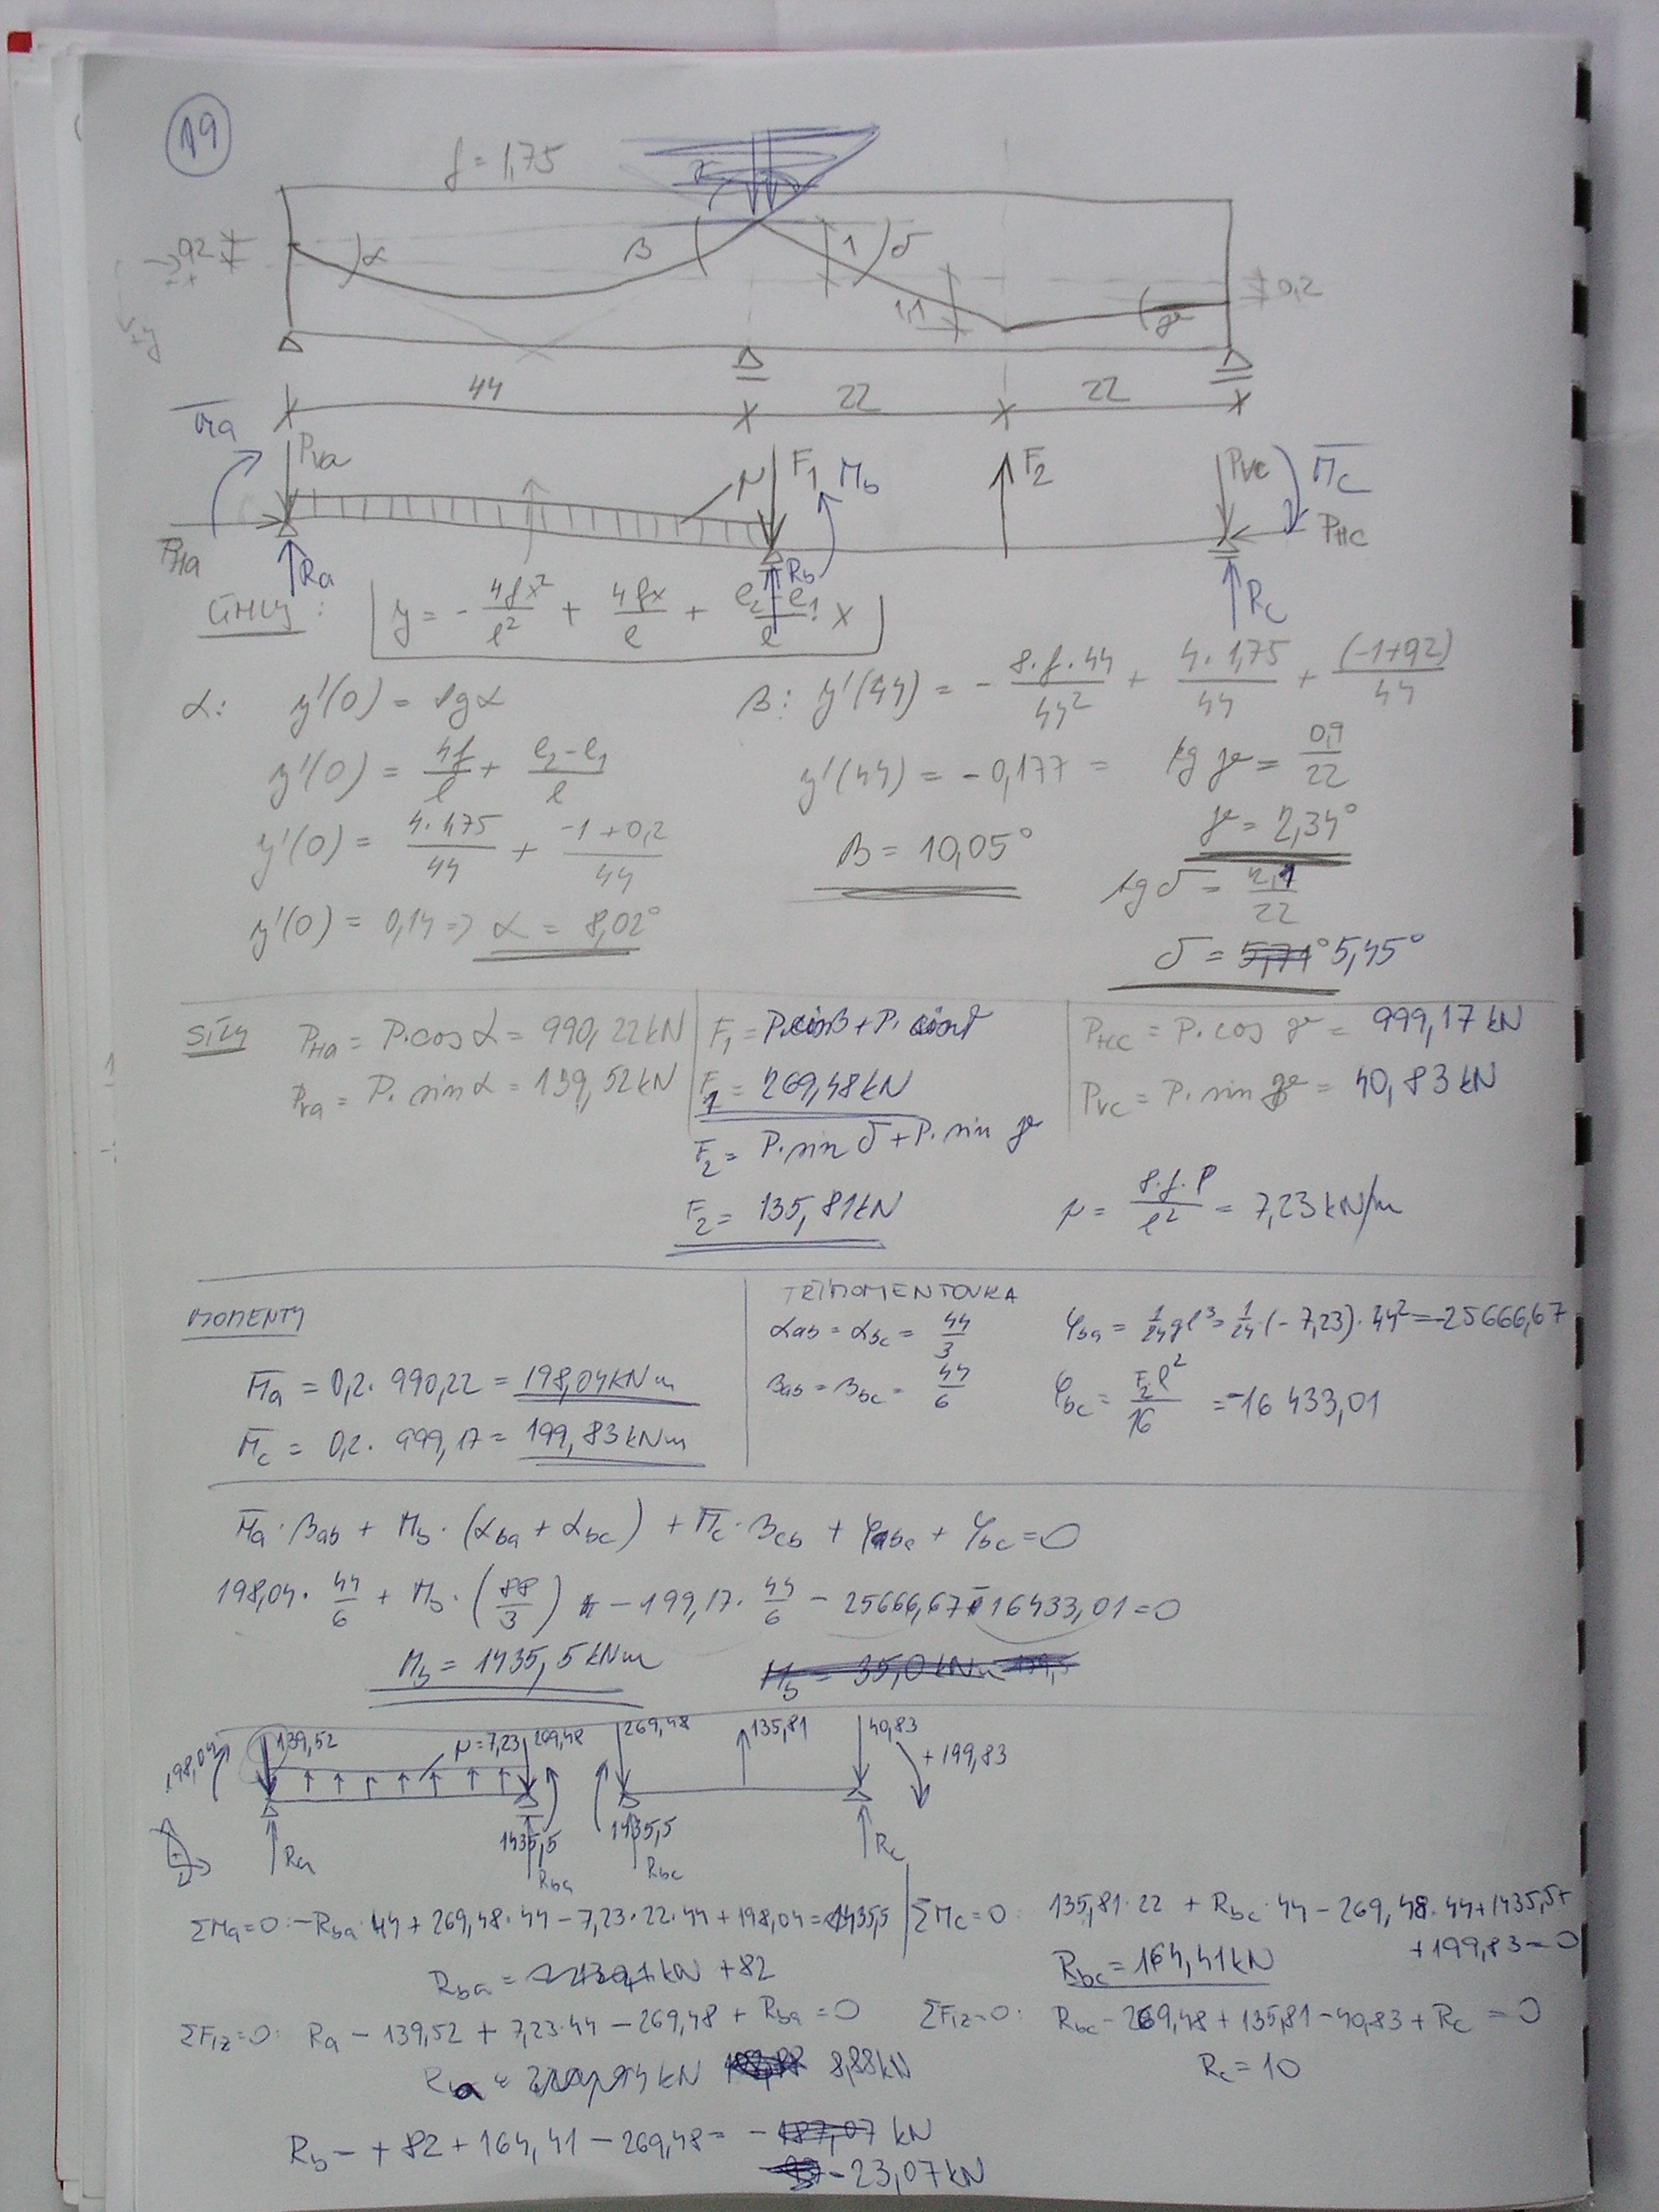 19
f = 1,75
α β 1 δ
0,2
1,1
44 22 22
Pva F1 Mb F2 Pvc Mc
PHa Ra Rb PHc
Rc
y = - 4fx² / l² + 4fx / l + e2 - e1 / l · x
α: y'(0) = tgα
β: y'(44) = - 8·f·44 / 44² + 4·1,75 / 44 + (-1+0,2) / 44
y'(0) = 4f / l + e2 - e1 / l
y'(44) = -0,177 =
tg γ = 0,9 / 22
y'(0) = 4·1,75 / 44 + -1+0,2 / 44
β = 10,05°
γ = 2,34°
y'(0) = 0,14 => α = 8,02°
tg δ = 2,1 / 22
δ = 5,71° 5,45°
SÍLY PHa = P·cos α = 990,22 kN
Pva = P·sin α = 139,52 kN
F1 = P·sinβ + P·sinδ
F1 = 269,48 kN
F2 = P·sin δ + P·sin γ
F2 = 135,81 kN
PHc = P·cos γ = 999,17 kN
Pvc = P·sin γ = 40,83 kN
p = 8·f·P / l² = 7,23 kN/m
MOMENTY
Ma = 0,2 · 990,22 = 198,04 kNm
Mc = 0,2 · 999,17 = 199,83 kNm
TŘÍMOMENTOVKA
αab = αbc = 44 / 3
βab = βbc = 44 / 6
φba = 1/24 gl³ = 1/24·(-7,23)·44² = -25666,67
φbc = F2l² / 16 = -16 433,01
Ma·βab + Mb·(αba + αbc) + Mc·βcb + φba + φbc = 0
198,04 · 44/6 + Mb·(88/3) - 199,17 · 44/6 - 25666,67 - 16433,01 = 0
Mb = 1435,5 kNm
Mb = 35,0 kNm
198,04 139,52 p = 7,23 269,48 269,48 135,81 40,83 +199,83
1435,5 1435,5
Ra Rba Rbc Rc
ΣMa=0: -Rba·44 + 269,48·44 - 7,23·22·44 + 198,04 = 1435,5
Rba = +82
ΣFiz=0: Ra - 139,52 + 7,23·44 - 269,48 + Rba = 0
Ra = 8,88 kN
ΣMc=0: 135,81·22 + Rbc·44 - 269,48·44 + 1435,5 +
+199,83 = 0
Rbc = 164,41 kN
ΣFiz=0: Rbc - 269,48 + 135,81 - 40,83 + Rc = 0
Rc = 10
Rb = +82 + 164,41 - 269,48 = -187,07 kN
-23,07 kN